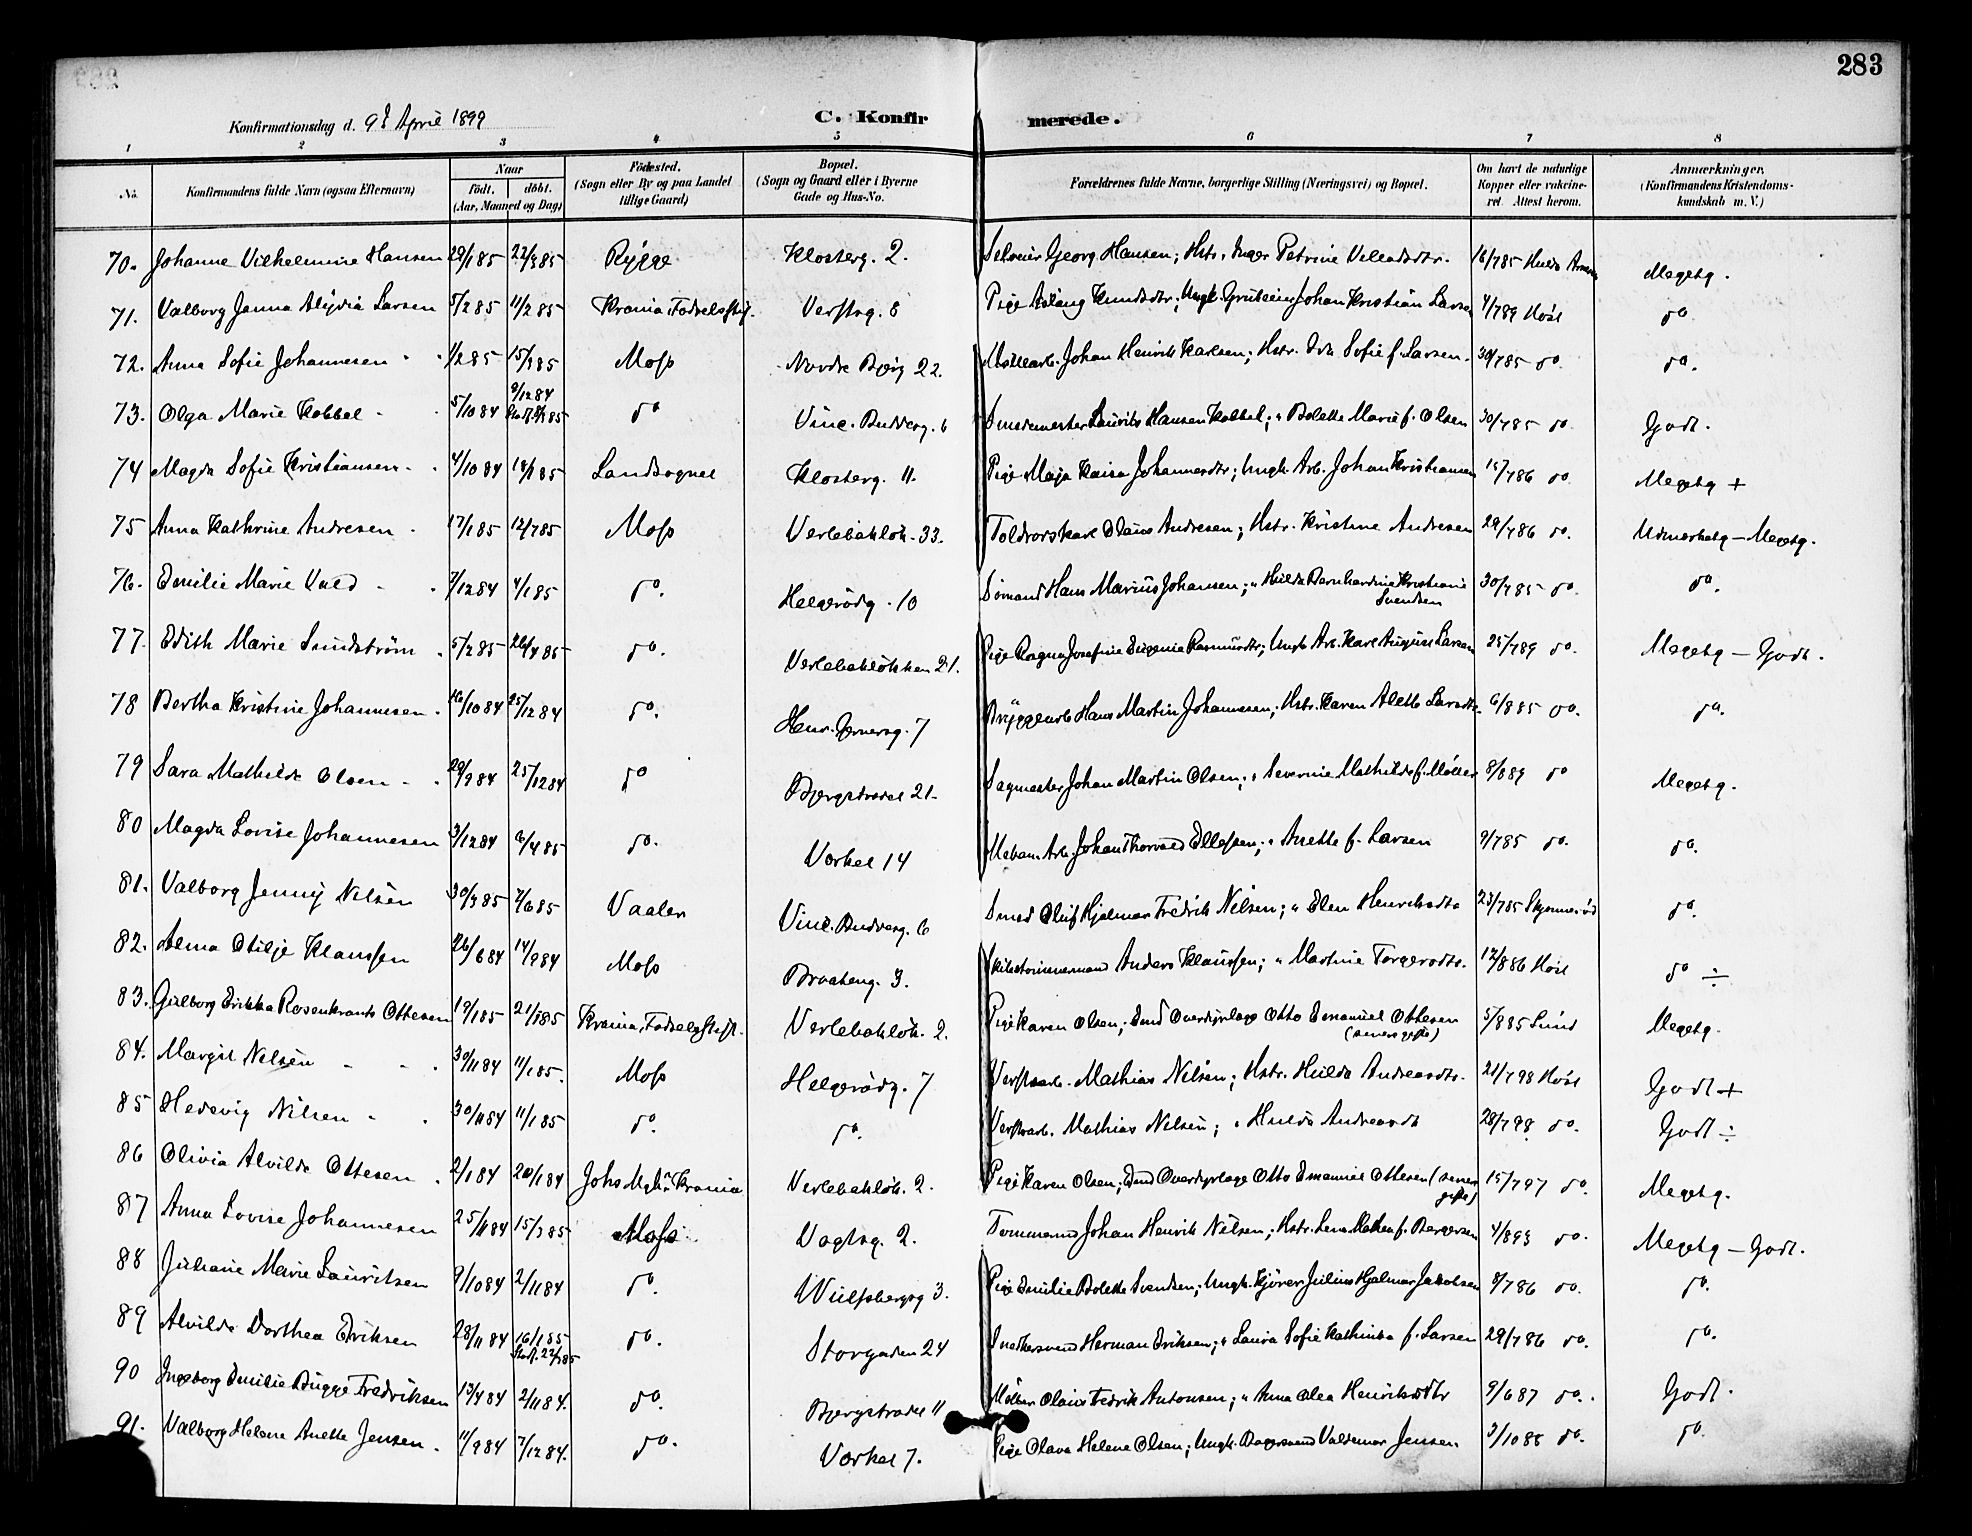 283
Konfirmationsdag d. 9d April 1899
C. Konfirmerede.
1 2 3 4 5 6 7 8
No. Konfirmandens fulde Navn (ogsaa Efternavn) Naar født. døbt. (Aar, Maaned og Dag) Fødested. (Sogn eller By og paa Landet tillige Gaard) Bopæl. (Sogn og Gaard eller i Byerne Gade og Hus-No. Forældrenes fulde Navne, borgerlige Stilling (Næringsvei) og Bopæl. Om havt de naturlige Kopper eller vakcineret. Attest herom. Anmærkninger. (Konfirmandens Kristendomskundskab m. V.)
70. Johanne Vilhelmine Hansen 29/1 85 22/3 85 Rygge Klosterg. 2. Selveier Georg Hansen; Hstr. Inger Petrine 16/7 85 Megetg.
71. Valborg Jenny Alydia Larsen 5/2 85 11/2 85 Krania Fødselsstif. Verftsg. 8 Pige Aslaug Knudsdtr; Ungk. Johan Kristian Larsen 4/7 89 Høst do
72. Anna Sofie Johannesen 1/2 85 15/3 85 Moss Nordre Bjerg 22. Møllearb. Johan Henrik Karlsen; Hstr. Ida Sofie f. Larsen. 30/7 85 do. do.
73. Olga Marie Kobbel 5/10 84 9/12 84 do Vinc. Budderg. 6 Smedmester Laurits Hansen Kobbel; " Bolette Marie f. Olsen 30/7 85 do. Godt.
74 Magda Sofie Kristiansen 4/10 84 18/1 85 Landsognet Klosterg. 11. Pige Maja Kaisa Johannesdtr; Ungk. Arb. Johan Kristiansen 15/7 86 do. Megetg +
75 Anna Kathrine Andresen 17/1 85 12/7 85 Moss Verlebakløk. 33. Toldroerskarl Olaus Andresen; Hstr. Kristine Andresen 29/7 86 do. Udmærketg - Megetg.
76. Emilie Marie Vold 7/12 84 4/1 85 do. Helgerødg. 10 Sømand Hans Marius Johansen; " Hulda Bernhardine Kristiane Svendsen 30/7 85 do. do.
77. Edith Marie Sundstrøm 5/2 85 26/4 85 do. Verlebakløkken 21. Pige Ragna Josefine Eugenie Rasmusdtr; Ungk. Arb. Karl August Larsen 25/7 89 do. Megetg - Godt.
78 Bertha Kristine Johannesen 16/10 84 25/12 84 do. Henr. Gernersg. 7 Bryggearb. Hans Martin Johannesen; Hstr. Karen Alette Larsdtr. 6/8 85 do. do.
79 Sara Mathilde Olsen 29/9 84 25/12 84 do Bjergstrædet 21. Sagmester Johan Martin Olsen; " Severine Mathilde f. Møller 8/8 89 do Megetg.
80 Magda Lovise Johannesen 3/12 84 6/4 85 do. Værket 14 Mekan. Arb. Johan Thorvald Ellefsen; " Anette f. Larsen 9/7 85 do. do.
81. Valborg Jenny Nilsen 30/3 85 7/6 85 Vaaler Vinc. Budderg. 6 Smed Oluf Hjalmar Fredrik Nilsen; " Elen Henriksdtr 23/7 85 do.
82. Alma Otilje Klaussen 26/6 84 14/9 84 Moss Braateng. 3. Skibstømmermand Anders Klaussen; " Martine Torgersdtr. 12/8 86 Høst do ÷
83. Gulborg Erikka Rosenkrants Ottesen 19/1 85 21/1 85 Krania, Fødselsstift. Verlebakløk. 2. Pige Karen Olsen; Smd Otto Emanuel Ottesen (senere gifte) 5/8 85 Sund Megetg.
84. Margit Nilsen 30/11 84 11/1 85. Moss Helgerødg. 7 Verftsarb. Mathias Nilsen; Hstr. Hulda Andreasdtr. 21/7 98 Høst Godt +
85 Hedevig Nilsen 30/11 84 11/1 85 do. do. Verftsarb. Mathias Nilsen; " Hulda Andreasdt 28/7 98 do. Godt ÷
86 Olivia Alvilde Ottesen 2/1 84 20/1 84 Krania Verlebakløk. 2. Pige Karen Olsen; Otto Emanuel Ottesen (senere gifte) 15/7 97 do. Megetg.
87 Anna Lovise Johannesen 25/11 84 15/3 85 Moss Vogtsg. 2. Tømmermd Johan Henrik Nilsen; Hstr. f. Bergersen 4/8 93 do. Megetg - Godt.
88 Juliane Marie Lauritsen 9/10 84 2/11 84 do. Wulfsbergsg 3. Pige Emilie Bolette Svendsen; Ungk. Kjører Julius Hjalmar Jakobsen 8/7 86 do. do.
89 Alvilde Dorthea Eriksen 28/11 84 16/1 85 Stadf. 22/3 85 do. Storgaden 24 Snedkersvend Herman Eriksen; " Laura Sofie Kathinka f. Larsen 29/7 86 do. do.
90 Ingeborg Emilie Bugge Fredriksen 13/4 84 2/11 84. do. Bjergstrædet 11 Møller Olaus Fredrik Antonsen; " Anna Olea Henriksdtr 9/6 87 do. Godt.
91. Valborg Helene Anette Jensen 11/9 84 7/12 84. do. Værket 7. Pige Olava Helene Olsen; Ungk. Bagersvend Valdemar Jensen 3/10 88 do. do.